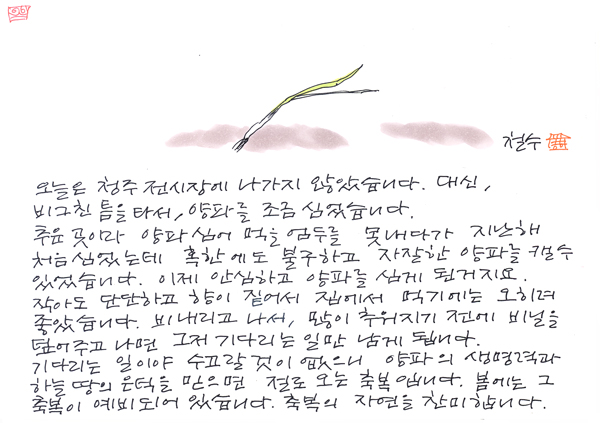 철수
오늘은 청주 전시장에 나가지 않았습니다. 대신,
비그친 틈을 타서, 양파를 조금 심었습니다.
추운 곳이라 양파 심어 먹을 엄두를 못내다가 지난해
처음 심었는데 혹한에도 불구하고 자잘한 양파를 캘 수
있었습니다. 이제 안심하고 양파를 심게 된거지요.
작아도 단단하고 향이 짙어서 집에서 먹기에는 오히려
좋았습니다. 비 내리고 나서, 많이 추워지기 전에 비닐을
덮어주고 나면 그저 기다리는 일만 남게 됩니다.
기다리는 일이야 수고랄 것이 없으니 양파의 생명력과
하늘 땅의 은덕을 믿으면 절로 오는 축복입니다. 봄에는 그
축복이 예비되어 있습니다. 축복의 자연을 찬미합니다.